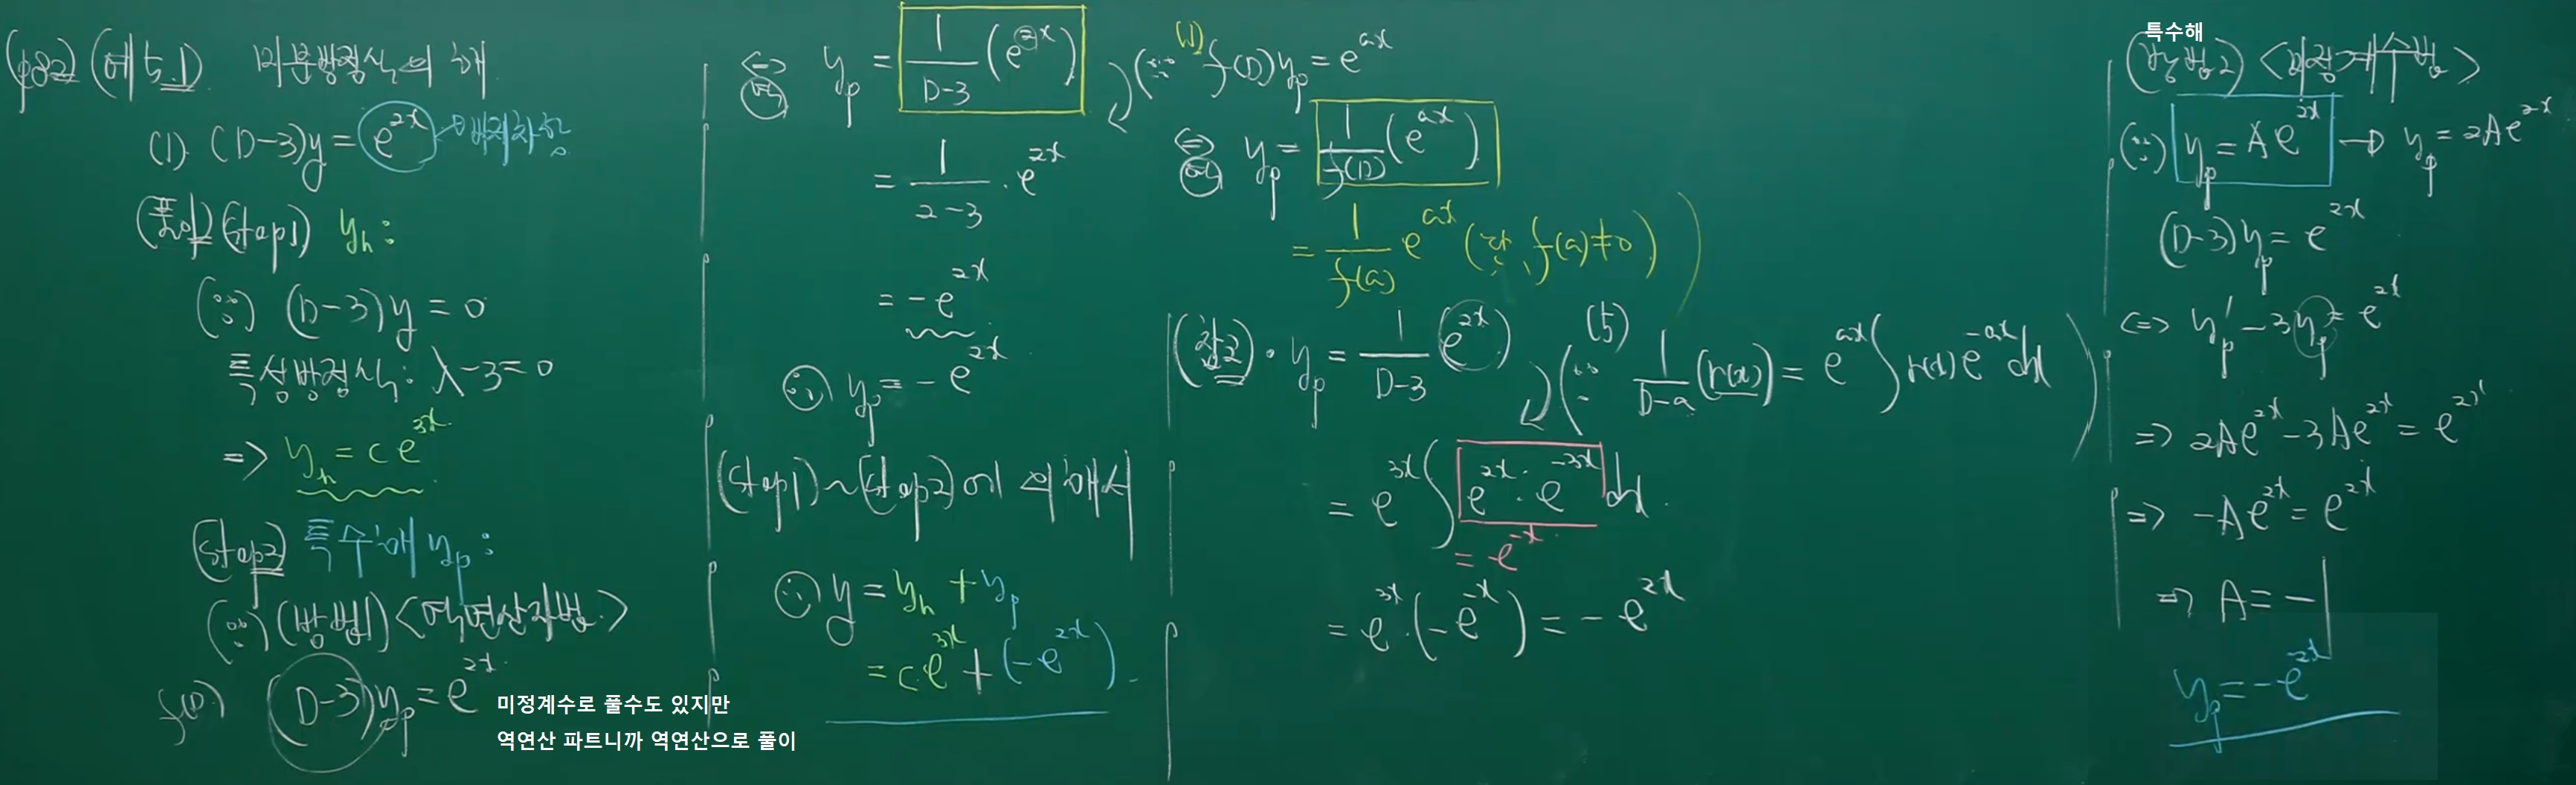 (p82) (예5.1) 미분방정식의 해
(1) (D-3)y = e^{2x} → 매개차항
(풀이) (step1) y_h :
(∵) (D-3)y = 0
특성방정식: λ-3=0
=> y_h = ce^{3x}
(step2) 특수해 y_p :
(∵) (방법1) <역연산자법>
f(D) (D-3)y_p = e^{2x}
미정계수로 풀수도 있지만
역연산 파트니까 역연산으로 풀이
<=> y_p = \frac{1}{D-3}(e^{2x})
= \frac{1}{2-3} · e^{2x}
= -e^{2x}
∴ y_p = -e^{2x}
(step1)~(step2)에 의해서
∴ y = y_h + y_p
= ce^{3x} + (-e^{2x}).
(∵ (1) f(D)y_p = e^{ax}
<=> y_p = \frac{1}{f(D)}(e^{ax})
= \frac{1}{f(a)} e^{ax} (단, f(a)≠0))
· y_p = \frac{1}{D-3}(e^{2x})
(5)
(∵ \frac{1}{D-a}(r(x)) = e^{ax}∫r(x)e^{-ax}dx)
= e^{3x}∫e^{2x}·e^{-3x}dx.
= e^{-x}
= e^{3x}·(-e^{-x}) = -e^{2x}
특수해
(방법2) <미정계수법>
(∵) y_p = Ae^{2x} → y_p = 2Ae^{2x}
(D-3)y_p = e^{2x}
<=> y_p' - 3y_p = e^{2x}
=> 2Ae^{2x} - 3Ae^{2x} = e^{2x}
=> -Ae^{2x} = e^{2x}
=> A = -1
y_p = -e^{2x}